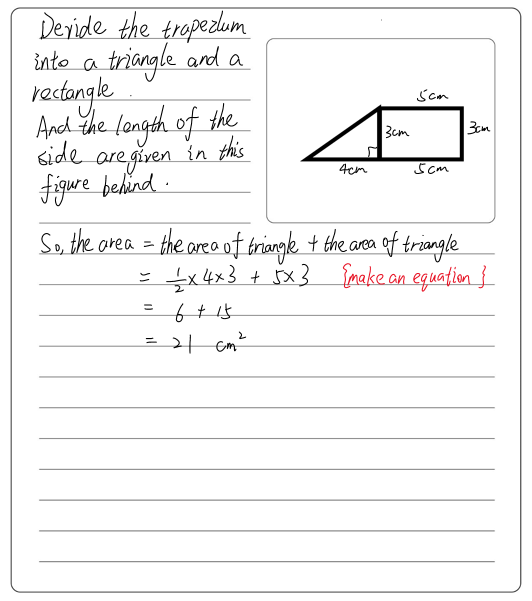 Devide the trapezlum
into a triangle and a
rectangle.
And the length of the
side are given in this
figure behind.
5cm
3cm
3cm
4cm
5cm
So, the area = the area of triangle + the area of triangle
= 1/2 × 4 × 3 + 5 × 3 {make an equation}
= 6 + 15
= 21 cm²